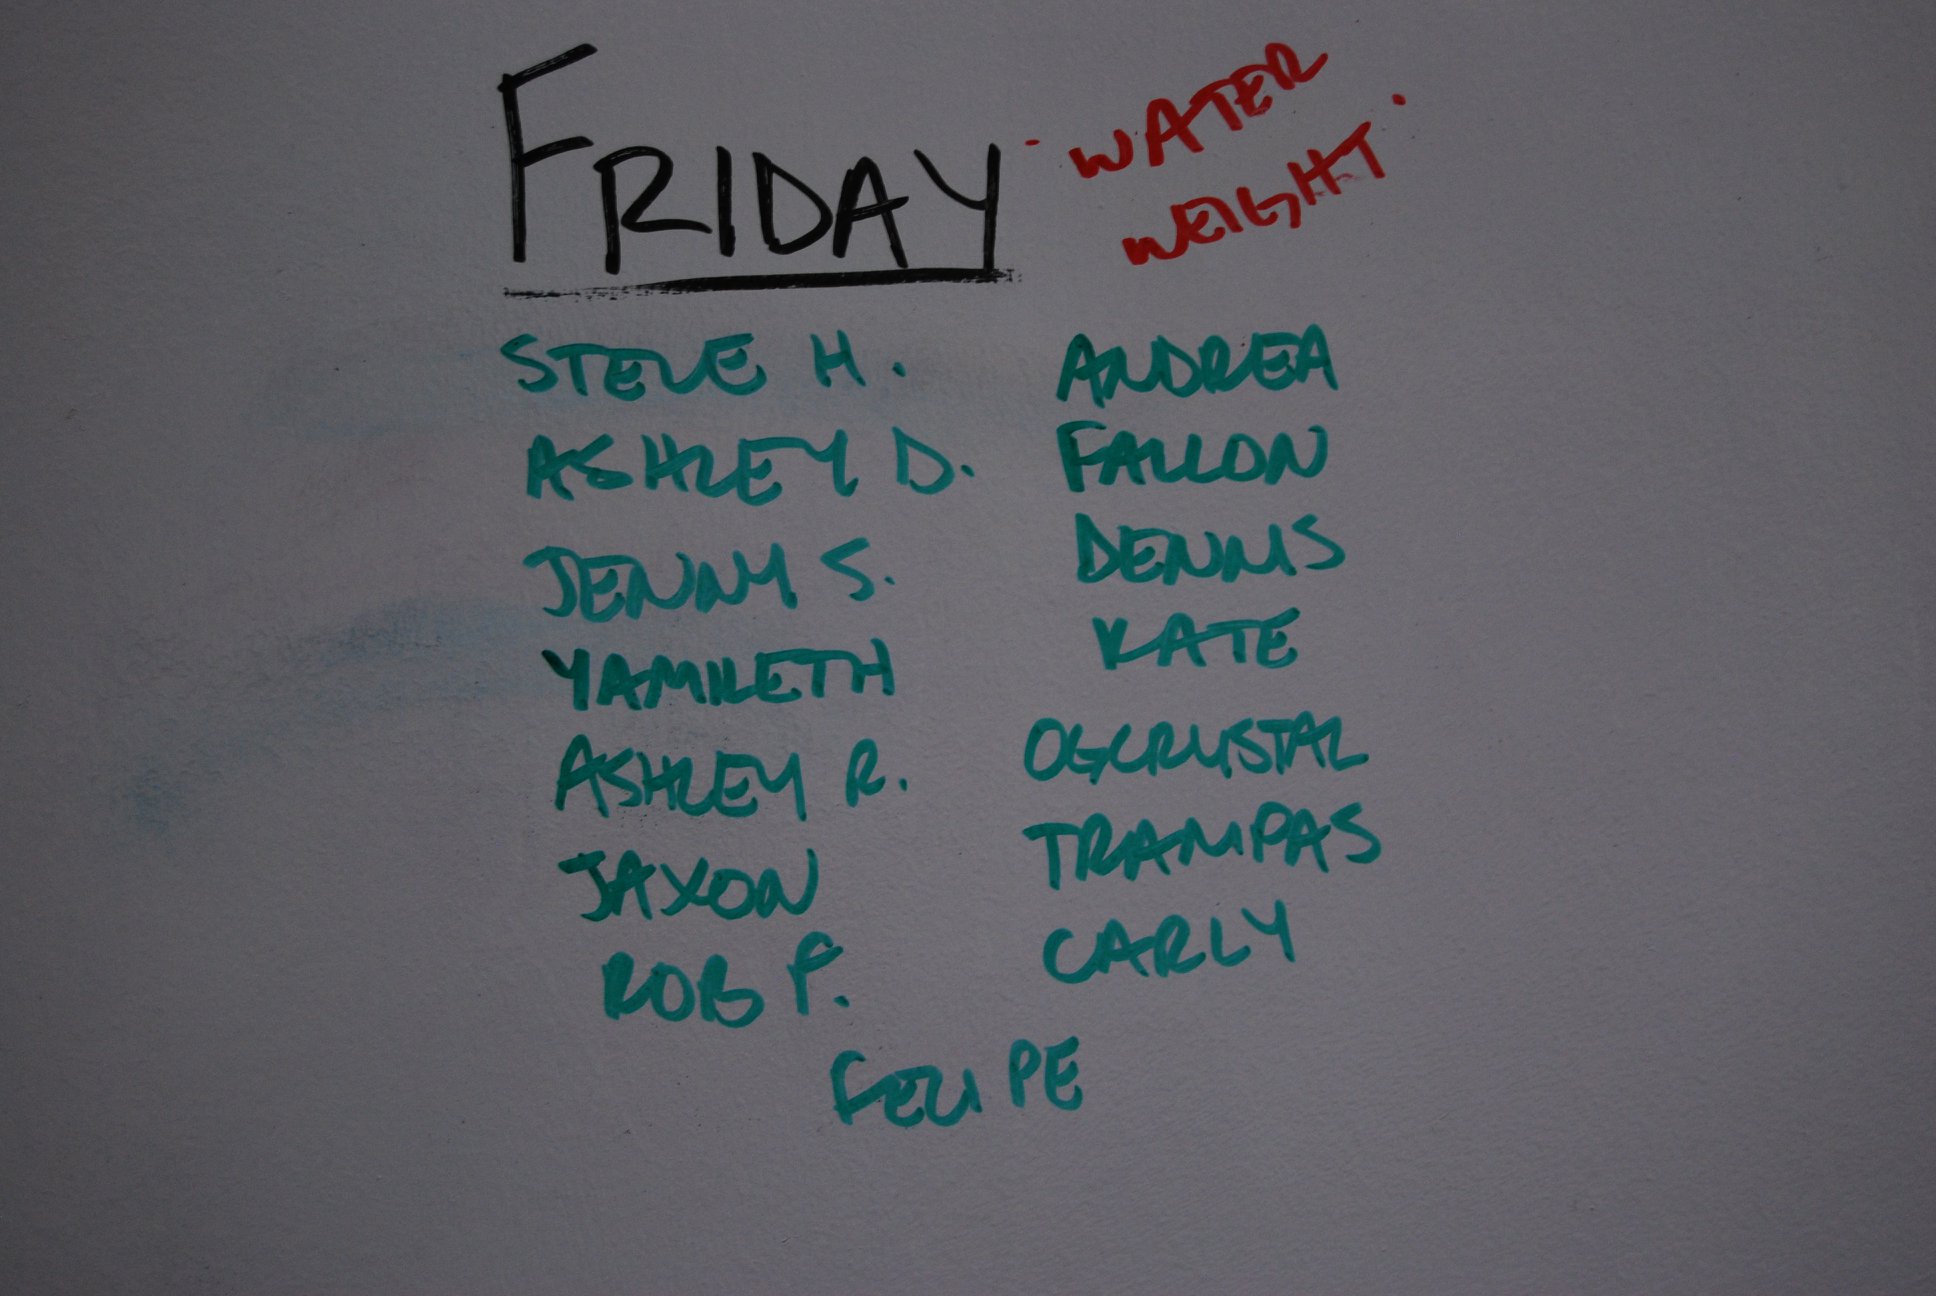 FRIDAY
· WATER WEIGHT ·
STEVE H.
ASHLEY D.
JENNY S.
YAMILETH
ASHLEY R.
JAXON
ROB F.
ANDREA
FALLON
DENNIS
KATE
OGCRYSTAL
TRAMPAS
CARLY
FELIPE